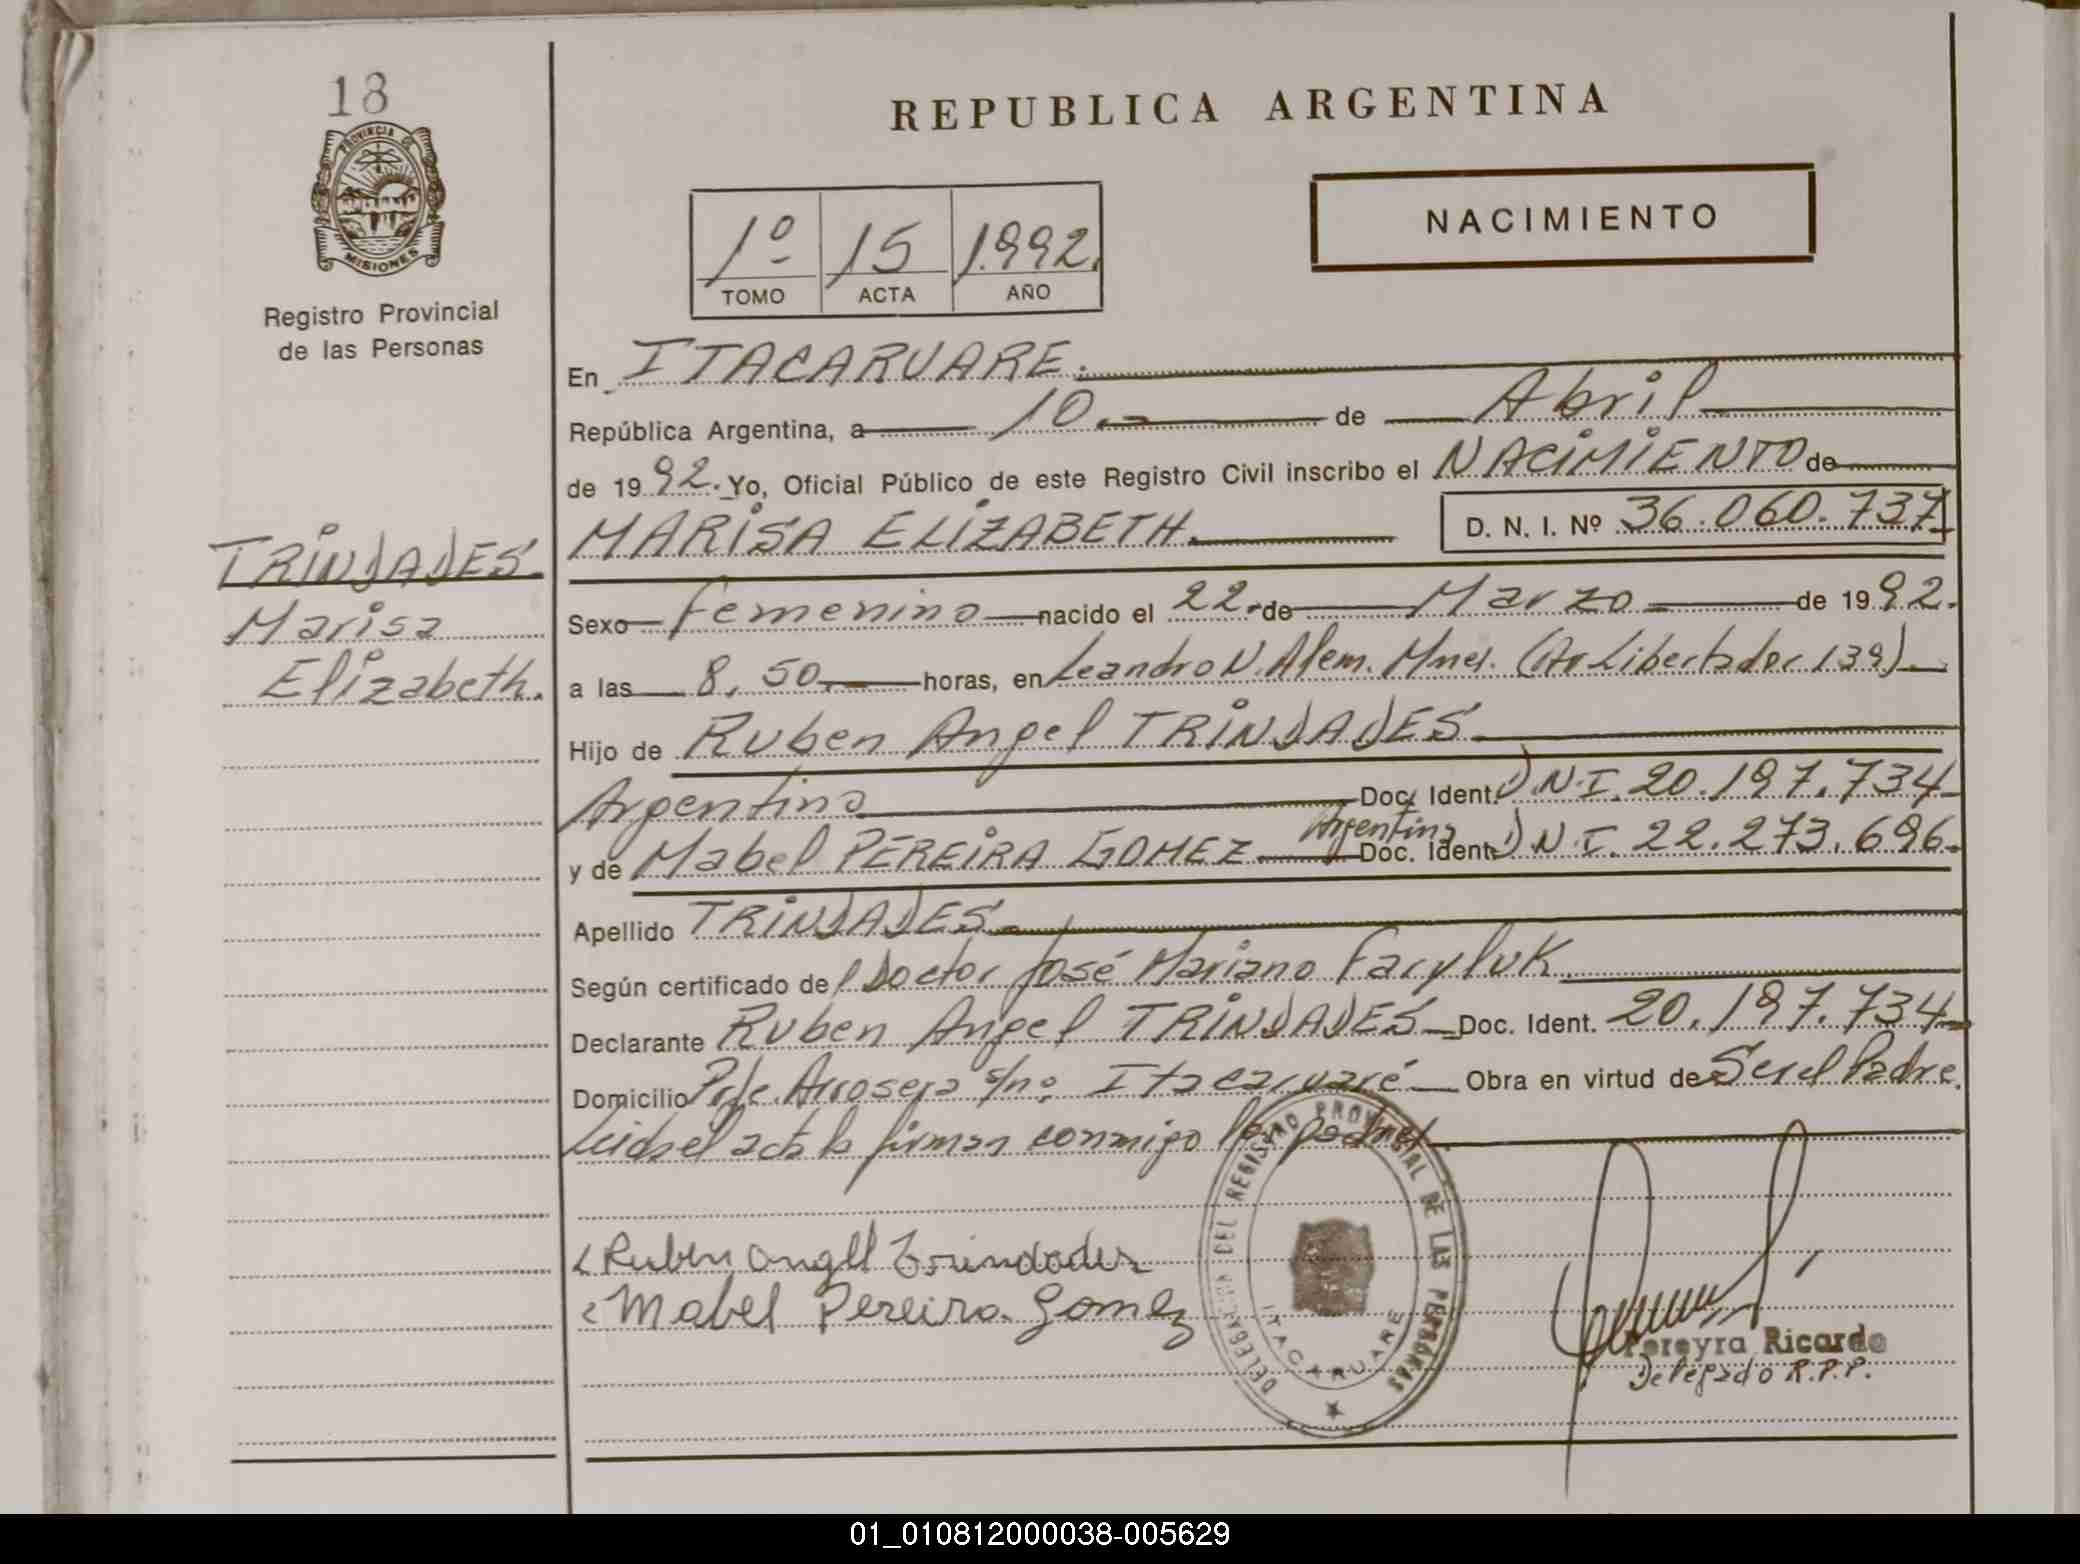 18
PROVINCIA DE
MISIONES
Registro Provincial
de las Personas
REPUBLICA ARGENTINA
NACIMIENTO
1º 15 1.992.
TOMO ACTA AÑO
En ITACARUARE.
República Argentina, a 10. de Abril
de 1992. Yo, Oficial Público de este Registro Civil inscribo el NACIMIENTO de
MARISA ELIZABETH. D. N. I. Nº 36.060.737
TRINDADES.
Marisa
Elizabeth.
Sexo Femenino nacido el 22. de Marzo de 1992.
a las 8,50. horas, en Leandro N. Alem. Mnes. (Av Libertador 139).
Hijo de Ruben Angel TRINDADES.
Argentino Doc. Ident. D.N.I. 20.197.734
Argentina
y de Mabel PEREIRA GOMEZ Doc. Ident. D.N.I. 22.273.696.
Apellido TRINDADES.
Según certificado del Doctor José Mariano Faryluk.
Declarante Ruben Angel TRINDADES Doc. Ident. 20.197.734
Domicilio Pje. Arrosera s/nº Itacaruaré Obra en virtud de Ser el Padre.
Leida el acta la firman conmigo los padres
Ruben Angel Trindades
Mabel Pereira Gomez
DELEGACION DEL REGISTRO PROVINCIAL DE LAS PERSONAS
ITACARUARE
Pereyra Ricardo
Delegado R.P.P.
01_010812000038-005629